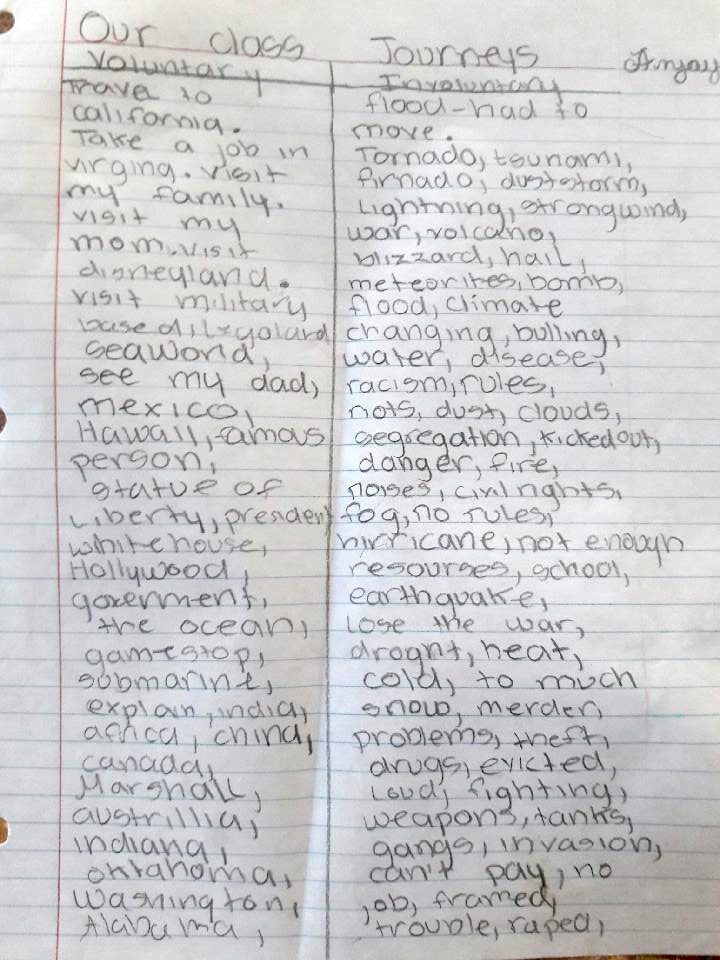 Our class Journeys
Voluntary
Travel to
california.
Take a job in
virging. visit
my family.
visit my
mom. visit
disneyland.
visit military
base
seaworld,
see my dad,
mexico,
Hawaii, famous
person,
statue of
Liberty, president
white house,
Hollywood,
goverment,
the ocean,
gamestop,
submarine,
explain, india,
africa, china,
canada,
Marshall,
austrillia,
indiana,
oklahoma,
washington,
Alabama,
Involuntary
flood-had to
move.
Tornado, tsunami,
firnado, duststorm,
Lightning, strongwind,
war, volcano,
blizzard, hail,
meteorites, bomb,
flood, climate
changing, bulling,
water, disease,
racism, rules,
riots, dust, clouds,
segregation, kicked out,
danger, fire,
noises, civil rights,
fog, no rules,
hirricane, not enough
resourses, school,
earthquake,
Lose the war,
droght, heat,
cold, to much
snow, merder,
problems, theft,
drugs, evicted,
Loud, fighting,
weapons, tanks,
gangs, invasion,
can't pay, no
job, framed,
trouble, raped,